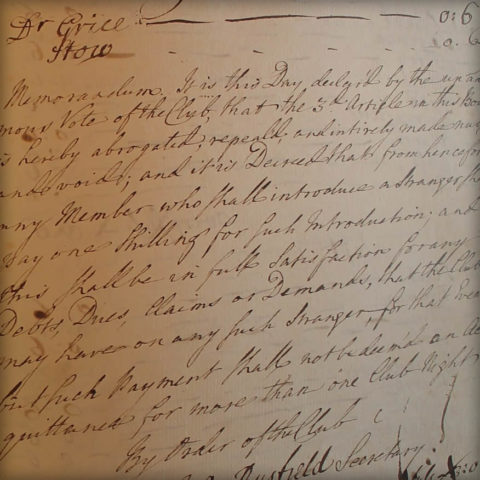 Dr Grice — 0:6
Stow - - - - 0.6
Memorandum. It is this Day decly'd by the unani
mous Vote of the Club, that the 3d Article in this Boo
is hereby abrogated, repeald, and intirely made nu
and void; and it is Decreed that from henceforw
any Member who shall introduce a Stranger, sha
pay one Shilling for such Introduction; and
this shall be in full Satisfaction for any
Debts, Dues, Claims or Demands, that the Club
may have on any such Stranger, for that Eve
but such Payment shall not be deem'd an Ac
quittance for more than one Club Night
By Order of the Club
Secretary.